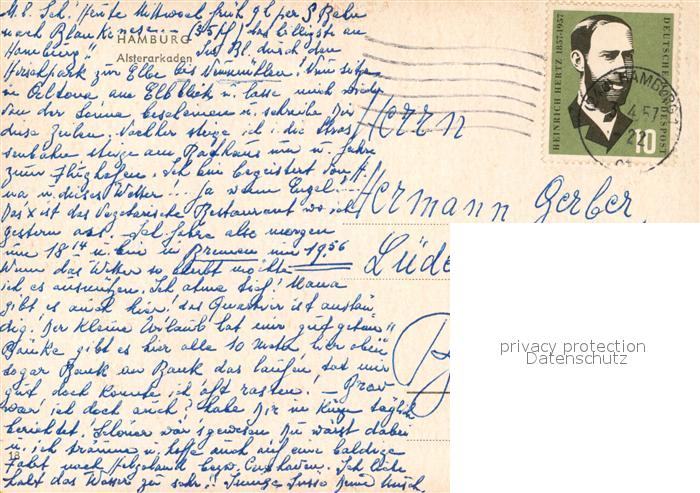 M. b. Sch.! Heute Mittwoch früh 9 h per S Bahn
nach Blankenese. – (35 Pf) das billigste an
HAMBURG
Alsterarkaden
Hamburg" Ges. Bl. durch den
Hirschpark zur Elbe bis Nun sitze
am Elbblick u. lasse mich
von der Sonne bescheinen u. schreibe Dir
diese Zeilen. Nachher steige ich i. die Stras
senbahn steige am Rathaus um u. fahre
zum Flughafen. Ich bin begeistert von H.
na u. dieses Wetter!... ja wenn Engel...!
Das x ist das Vegetarische Restaurant wo ich
gestern ass. – Ich fahre also morgen
um 18 14 u. bin in Bremen um 19.56
Wenn das Wetter so bleibt möchte
ich es ausnützen. Ich atme tief! Mama
gibt es auch hier! das Quartier ist anstän
dig! Der kleine Urlaub hat mir gut getan"
Bänke gibt es hier alle 10 Meter, hier oben
sogar Bank an Bank das laufen tat mir
gut, doch konnte ich oft rasten! – Brav
war ich doch auch? habe Dir in Kürze täglich
berichtet! Schöner wär's gewesen Du wärst dabei
u. ich träume u. hoffe auch auf eine baldige
18
Fahrt nach Helgoland bezw. Cuxhaven. Ich liebe
halt das Wasser zu sehr!! Deine
HEINRICH HERTZ 1857·1957
DEUTSCHE BUNDESPOST
10
HAMBURG 1
4.57
22
Herrn
Hermann Gerber,
Lüde
privacy protection
Datenschutz